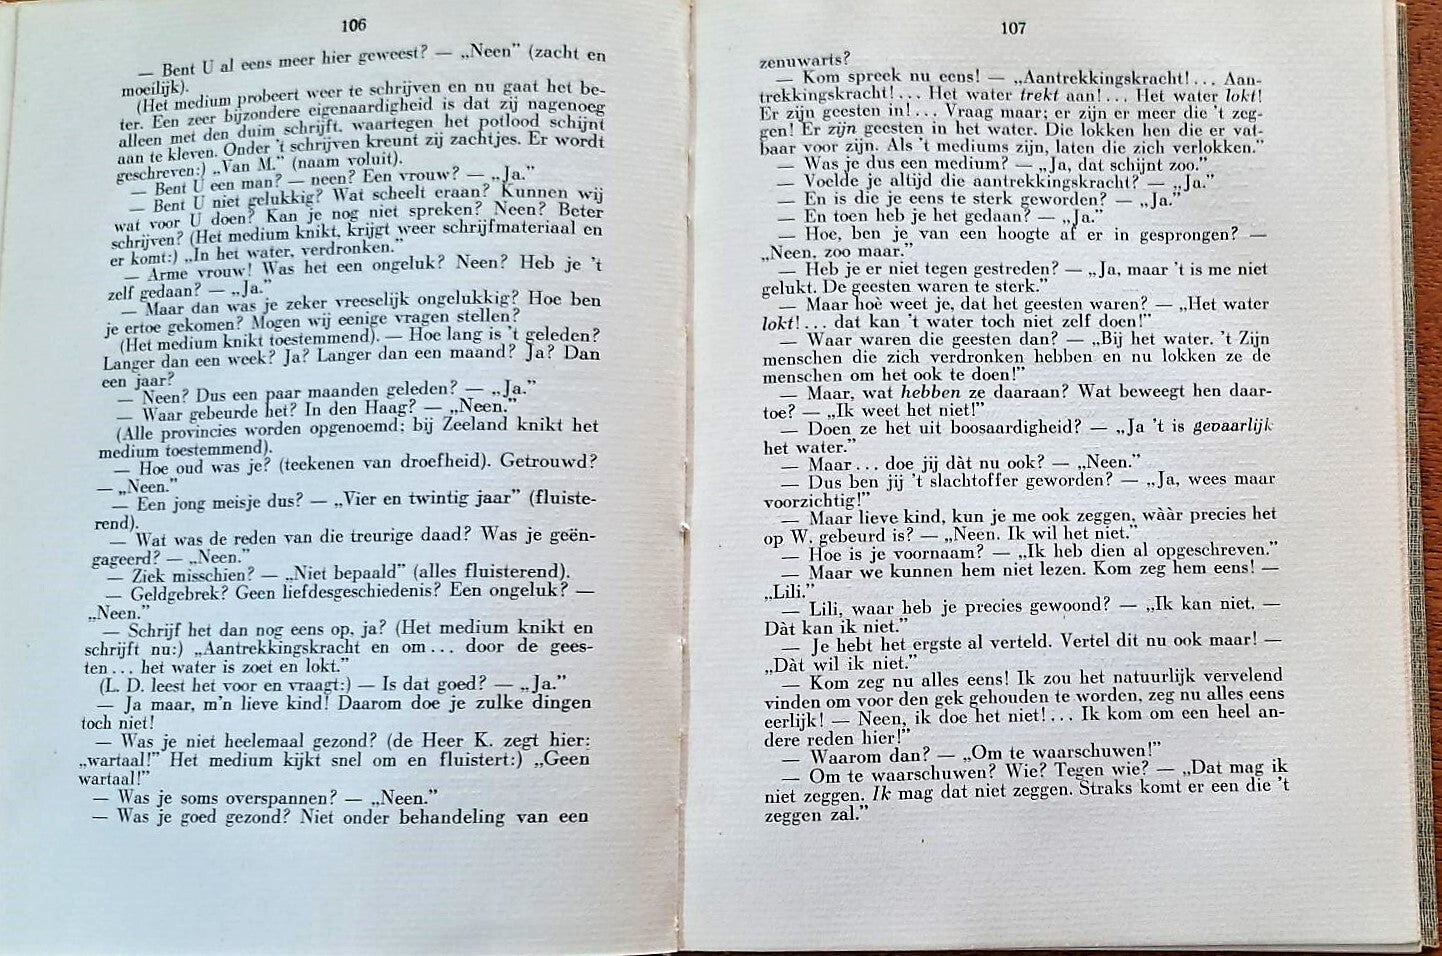 106
— Bent U al eens meer hier geweest? — „Neen” (zacht en
moeilijk).
(Het medium probeert weer te schrijven en nu gaat het be-
ter. Een zeer bijzondere eigenaardigheid is dat zij nagenoeg
alleen met den duim schrijft, waartegen het potlood schijnt
aan te kleven. Onder 't schrijven kreunt zij zachtjes. Er wordt
geschreven:) „Van M.” (naam voluit).
— Bent U een man? — neen? Een vrouw? — „Ja.”
— Bent U niet gelukkig? Wat scheelt eraan? Kunnen wij
wat voor U doen? Kan je nog niet spreken? Neen? Beter
schrijven? (Het medium knikt, krijgt weer schrijfmateriaal en
er komt:) „In het water, verdronken.”
— Arme vrouw! Was het een ongeluk? Neen? Heb je 't
zelf gedaan? — „Ja.”
— Maar dan was je zeker vreeselijk ongelukkig? Hoe ben
je ertoe gekomen? Mogen wij eenige vragen stellen?
(Het medium knikt toestemmend). — Hoe lang is 't geleden?
Langer dan een week? Ja? Langer dan een maand? Ja? Dan
een jaar?
— Neen? Dus een paar maanden geleden? — „Ja.”
— Waar gebeurde het? In den Haag? — „Neen.”
(Alle provincies worden opgenoemd; bij Zeeland knikt het
medium toestemmend).
— Hoe oud was je? (teekenen van droefheid). Getrouwd?
— „Neen.”
— Een jong meisje dus? — „Vier en twintig jaar” (fluiste-
rend).
— Wat was de reden van die treurige daad? Was je geën-
gageerd? — „Neen.”
— Ziek misschien? — „Niet bepaald” (alles fluisterend).
— Geldgebrek? Geen liefdesgeschiedenis? Een ongeluk? —
„Neen.”
— Schrijf het dan nog eens op, ja? (Het medium knikt en
schrijft nu:) „Aantrekkingskracht en om... door de gees-
ten... het water is zoet en lokt.”
(L. D. leest het voor en vraagt:) — Is dat goed? — „Ja.”
— Ja maar, m'n lieve kind! Daarom doe je zulke dingen
toch niet!
— Was je niet heelemaal gezond? (de Heer K. zegt hier:
„wartaal!” Het medium kijkt snel om en fluistert:) „Geen
wartaal!”
— Was je soms overspannen? — „Neen.”
— Was je goed gezond? Niet onder behandeling van een
107
zenuwarts?
— Kom spreek nu eens! — „Aantrekkingskracht!... Aan-
trekkingskracht!... Het water trekt aan!... Het water lokt!
Er zijn geesten in!... Vraag maar; er zijn er meer die 't zeg-
gen! Er zijn geesten in het water. Die lokken hen die er vat-
baar voor zijn. Als 't mediums zijn, laten die zich verlokken.”
— Was je dus een medium? — „Ja, dat schijnt zoo.”
— Voelde je altijd die aantrekkingskracht? — „Ja.”
— En is die je eens te sterk geworden? — „Ja.”
— En toen heb je het gedaan? — „Ja.”
— Hoe, ben je van een hoogte af er in gesprongen? —
„Neen, zoo maar.”
— Heb je er niet tegen gestreden? — „Ja, maar 't is me niet
gelukt. De geesten waren te sterk.”
— Maar hoè weet je, dat het geesten waren? — „Het water
lokt!... dat kan 't water toch niet zelf doen!”
— Waar waren die geesten dan? — „Bij het water. 't Zijn
menschen die zich verdronken hebben en nu lokken ze de
menschen om het ook te doen!”
— Maar, wat hebben ze daaraan? Wat beweegt hen daar-
toe? — „Ik weet het niet!”
— Doen ze het uit boosaardigheid? — „Ja 't is gevaarlijk
het water.”
— Maar... doe jij dàt nu ook? — „Neen.”
— Dus ben jij 't slachtoffer geworden? — „Ja, wees maar
voorzichtig!”
— Maar lieve kind, kun je me ook zeggen, wààr precies het
op W. gebeurd is? — „Neen. Ik wil het niet.”
— Hoe is je voornaam? — „Ik heb dien al opgeschreven.”
— Maar we kunnen hem niet lezen. Kom zeg hem eens! —
„Lili.”
— Lili, waar heb je precies gewoond? — „Ik kan niet. —
Dàt kan ik niet.”
— Je hebt het ergste al verteld. Vertel dit nu ook maar! —
„Dàt wil ik niet.”
— Kom zeg nu alles eens! Ik zou het natuurlijk vervelend
vinden om voor den gek gehouden te worden, zeg nu alles eens
eerlijk! — Neen, ik doe het niet!... Ik kom om een heel an-
dere reden hier!”
— Waarom dan? — „Om te waarschuwen!”
— Om te waarschuwen? Wie? Tegen wie? — „Dat mag ik
niet zeggen. Ik mag dat niet zeggen. Straks komt er een die 't
zeggen zal.”